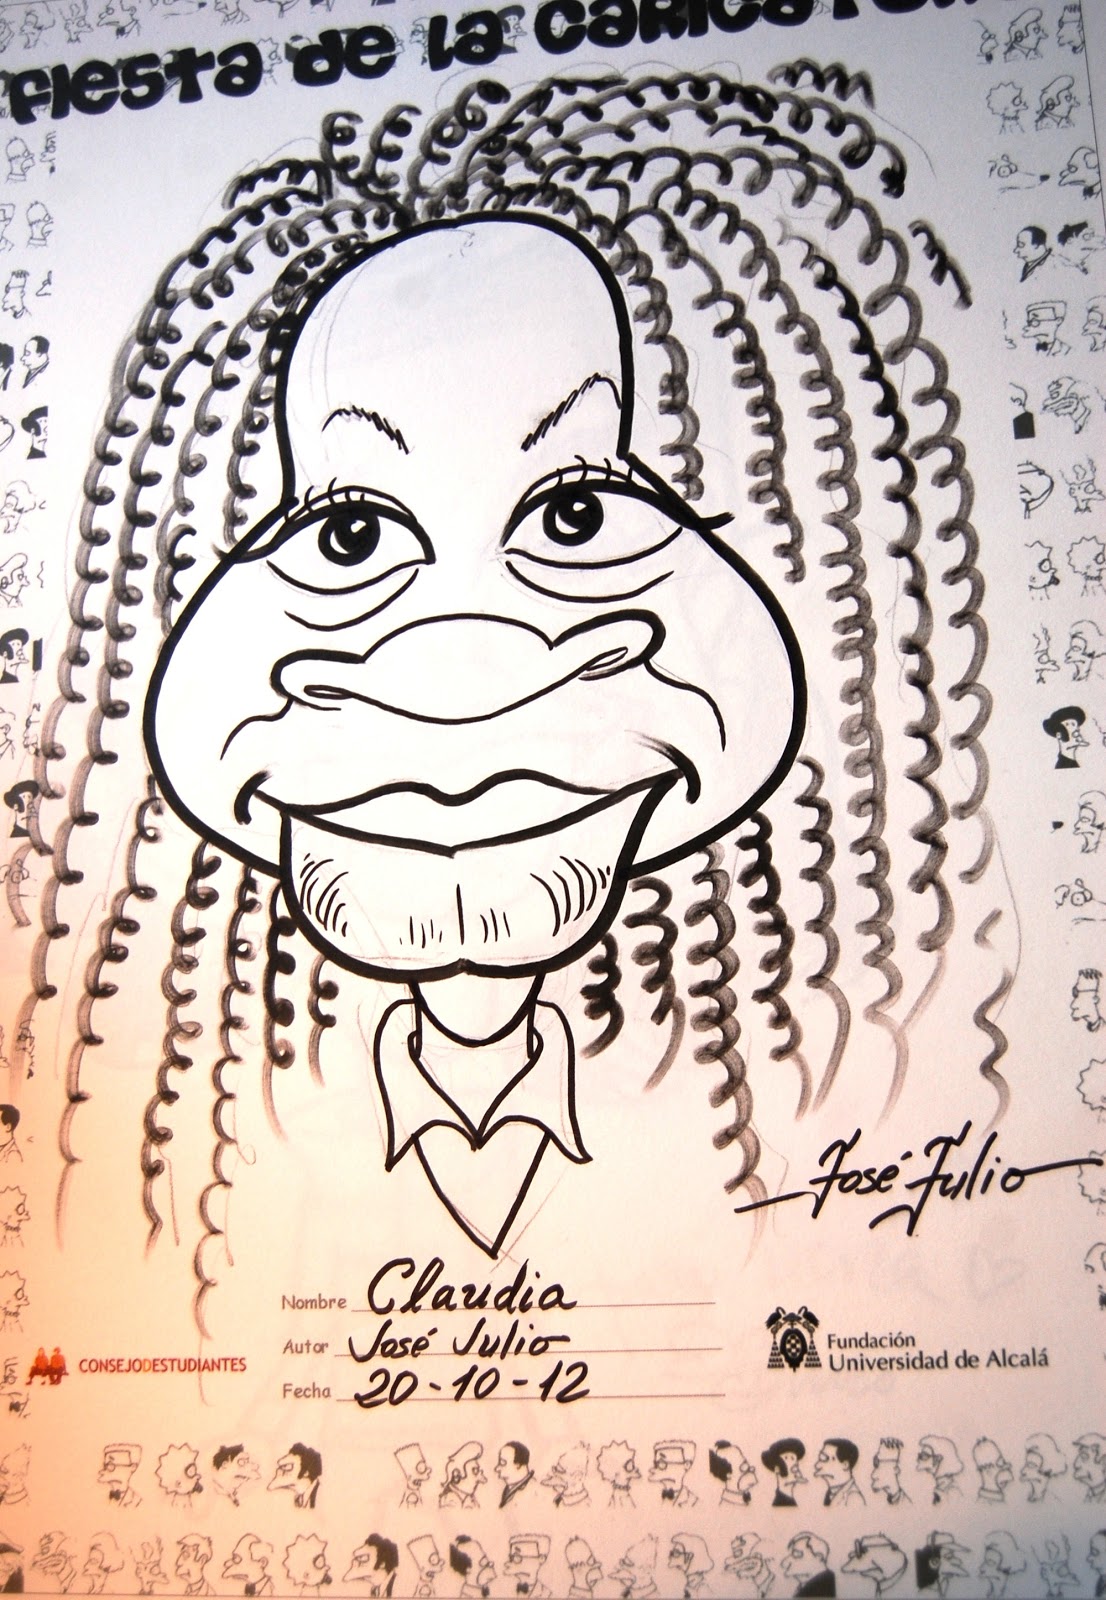 FIESTA DE LA CARICATURA
José Julio
Nombre Claudia
Autor José Julio
Fecha 20-10-12
CONSEJODEESTUDIANTES
Fundación
Universidad de Alcalá